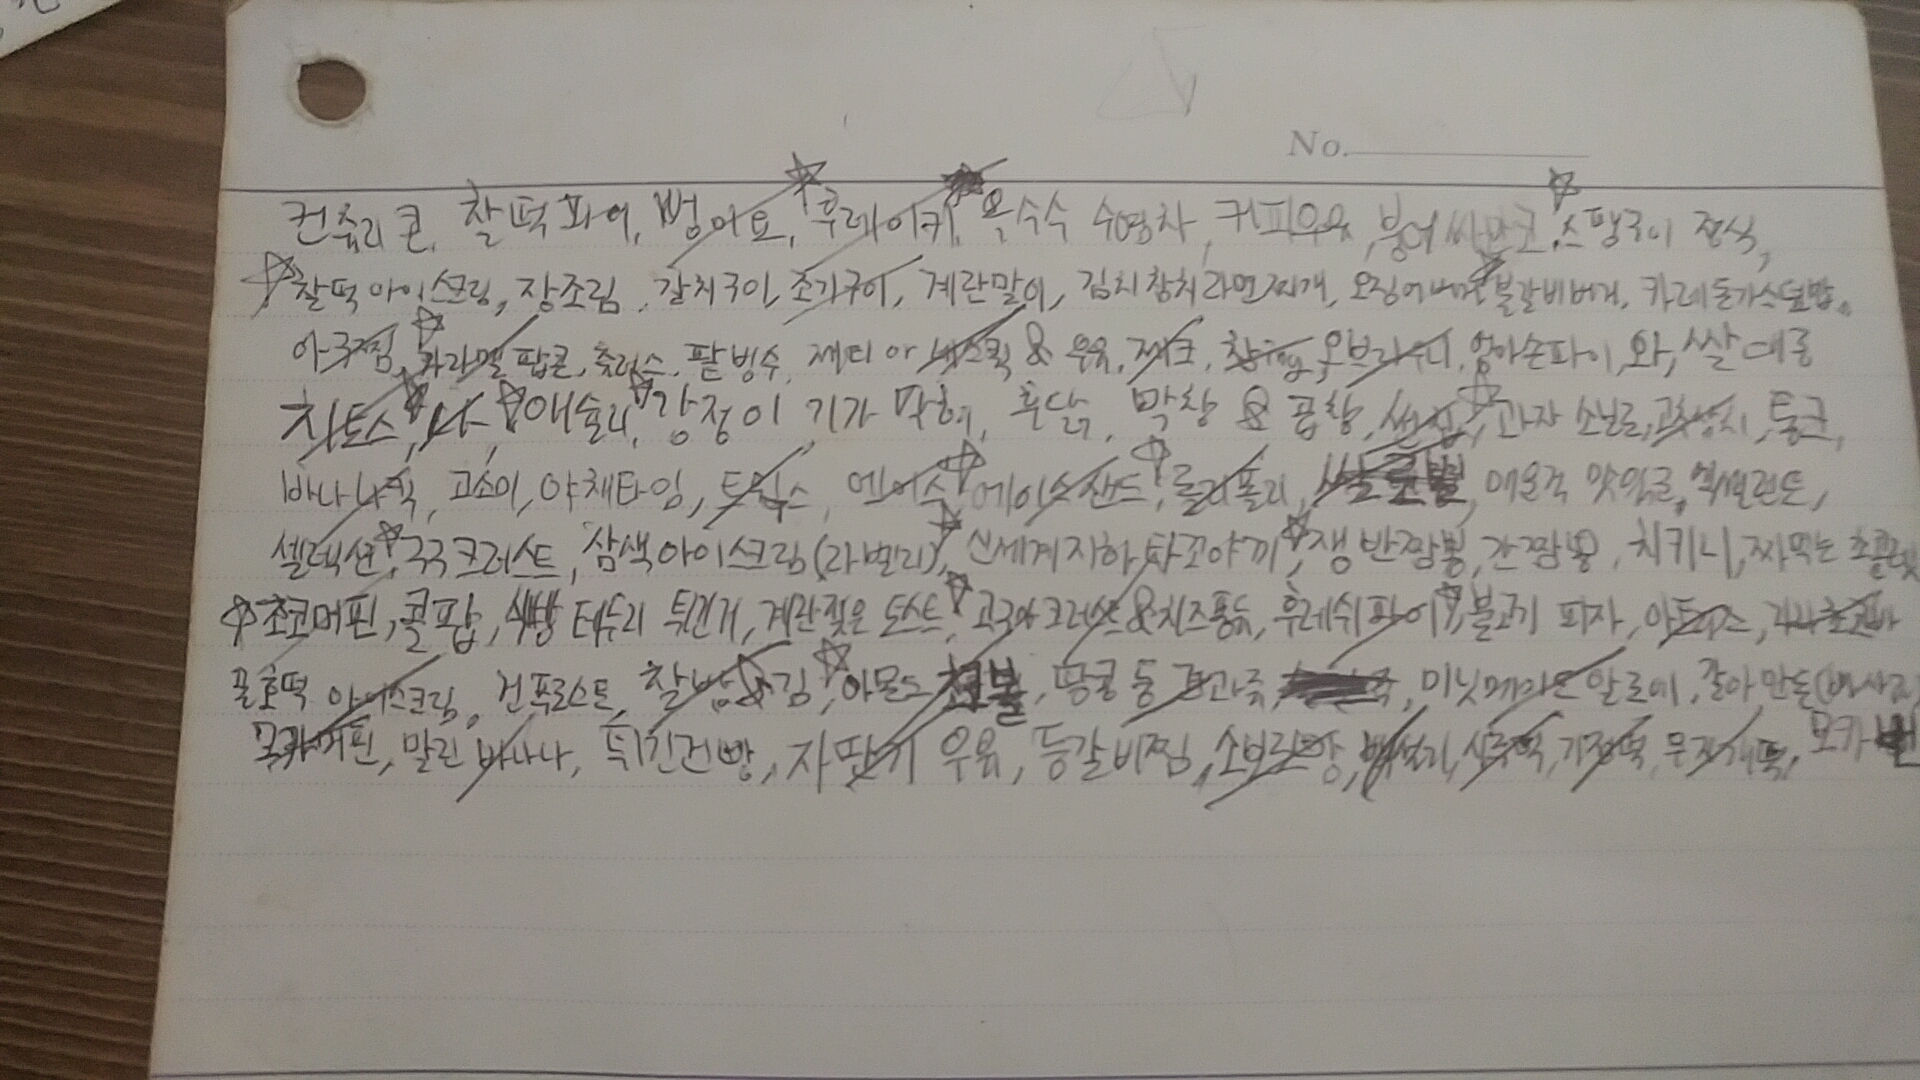 No.
컨츄리콘, 찰떡파이, 뻥이요, 후레이키, 옥수수 수염차, 커피우유, 붕어싸만코, 스팸구이 정식,
찰떡아이스크림, 장조림, 갈치구이, 조기구이, 계란말이, 김치참치라면찌개, 오징어버거, 불갈비버거, 카레돈가스덮밥,
아구찜, 카라멜 팝콘, 츄러스, 팥빙수, 제티 아 네스퀵 & 우유, 제크, 오브라우니, 엄마손파이, 와, 쌀대롱
치토스, 애슐리, 강정이 기가 막혀, 훈닭, 막창 & 곱창, 썬칩, 과자 소닐로, 통크,
바나나킥, 고소미, 야채타임, 트윅스, 엔이수, 에이스샌드, 롤리폴리, 매운걱 맛있금, 엑셀런트,
셀렉션, 국국크러스트, 삼색아이스크림(라벨리), 신세계지하 타꼬야끼, 쟁반짬뽕, 간짬뽕, 치키니, 짜먹는 초콜릿
초코머핀, 콜팝, 식빵 테두리 튀긴거, 계란 젖은 토스트, 고구마크러스트&치즈퐁듀, 후레쉬파이, 불고기 피자,
꿀호떡 아이스크림, 건프로스트, 찰밥&김, 아몬드 초코볼, 땅콩 등 견과국, 미닛메이드 알로에, 갈아만든
모카머핀, 말린 바나나, 튀긴건빵, 자판기 우유, 등갈비찜, 소보르빵, 백설기, 시루떡, 기정떡, 무지개떡, 모카번